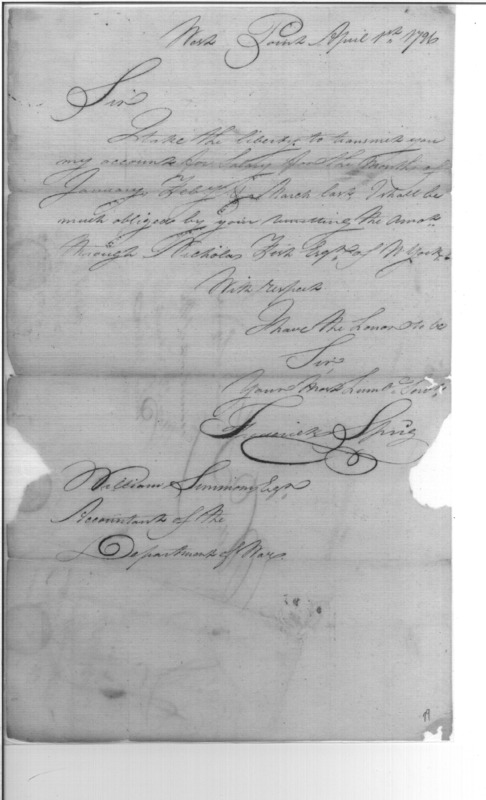 West Point April 1st. 1796
Sir
I take the liberty to transmit you
my accounts for Salary for the Months of
January, Feby. & March last I shall be
much obliged by your remitting the amot.
through Nicholas Fish Esqr. of N York.
With respect
I have the honor to be
Sir
Your Most humbe. Servt.
Frederick Spriz
William Simmons Esqr.
Accountant of the
Department of War.